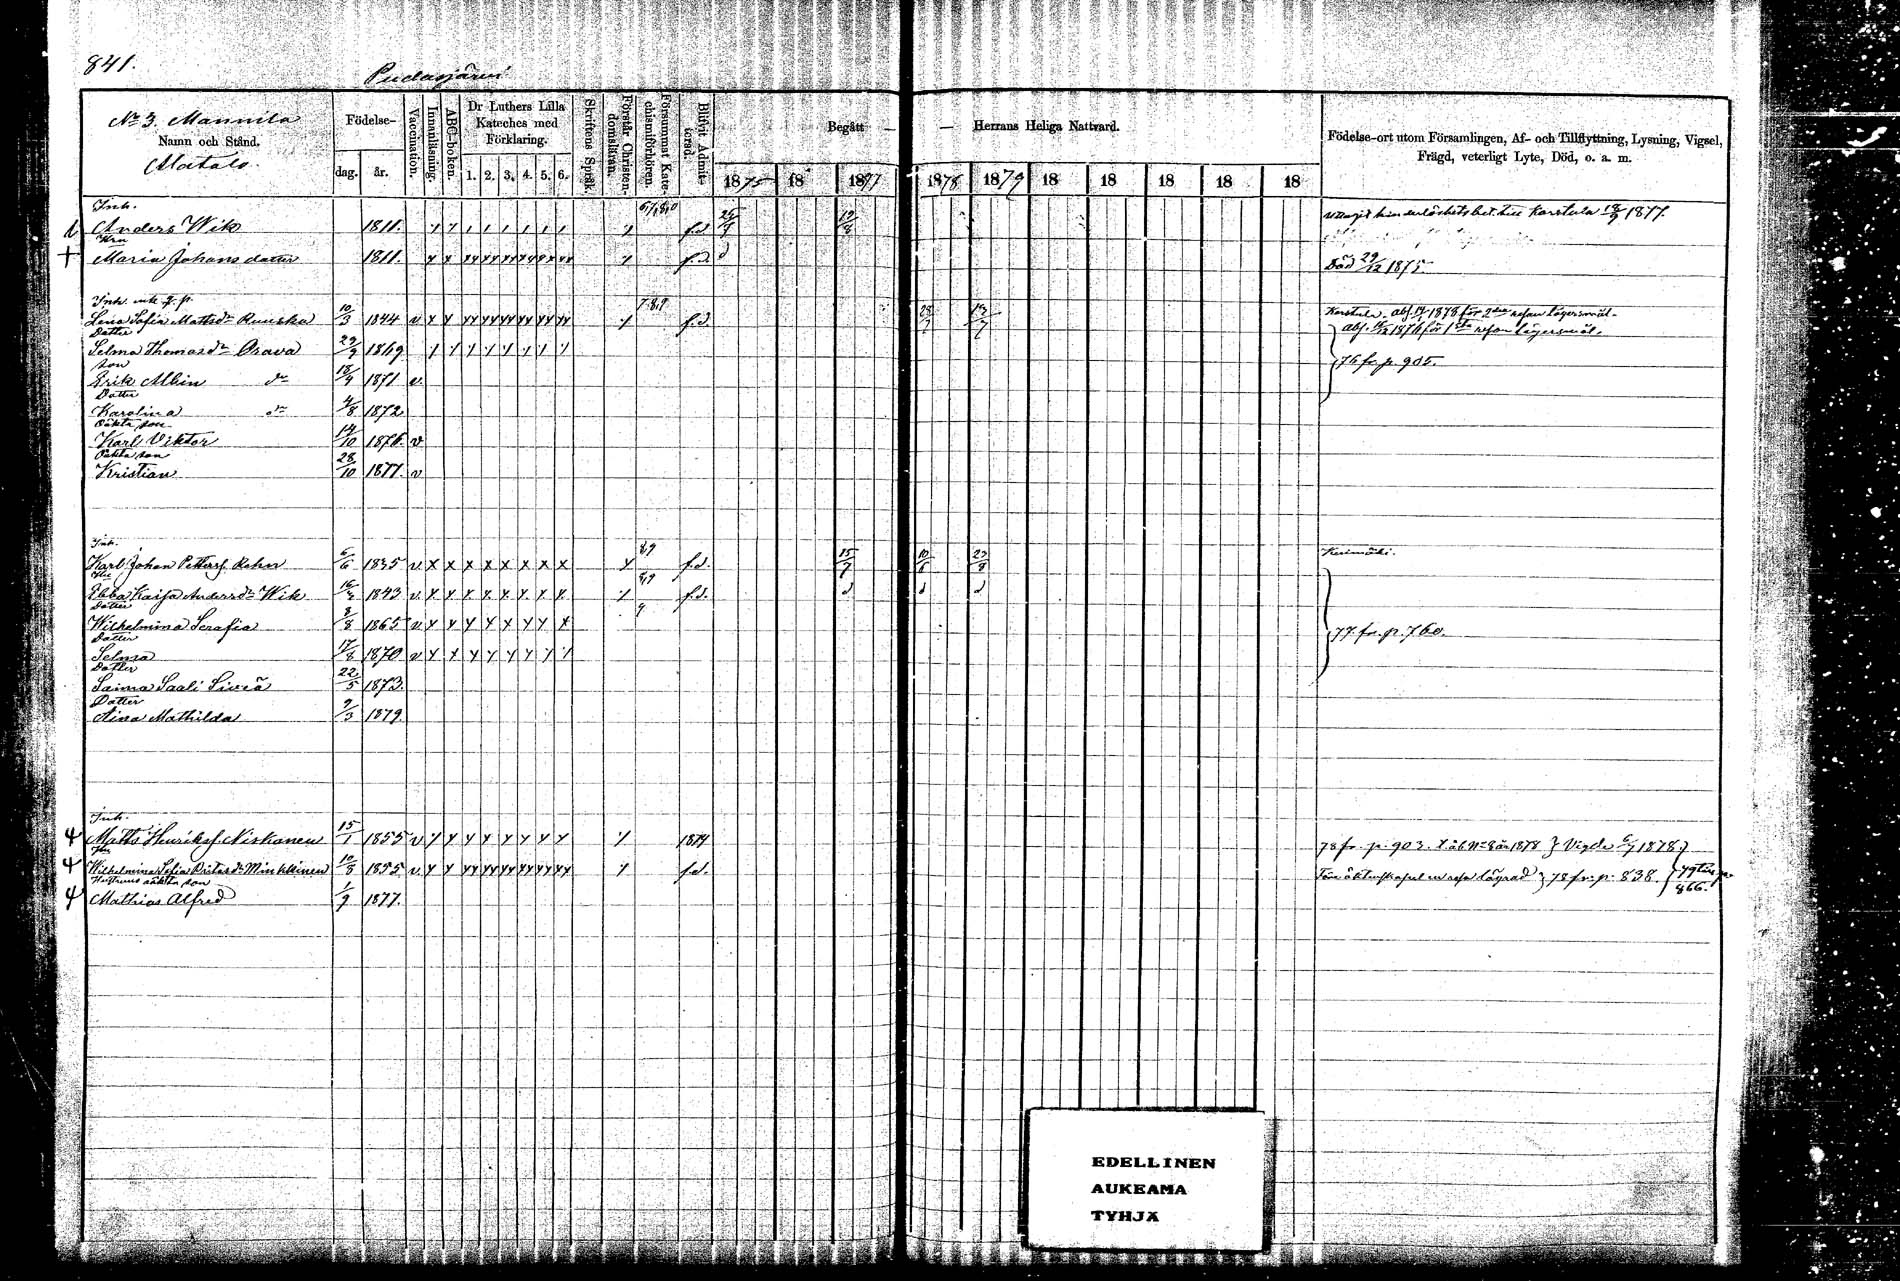 841.
Pudasjärvi
No 3. Mannila
Namn och Stånd.
Matalo.
Födelse-
dag. år.
Vaccination.
Innanläsning.
ABC-boken.
Dr Luthers Lilla Kateches med Förklaring.
1. 2. 3. 4. 5. 6.
Skriftens Språk.
Förstår Christendomsläran.
Försummat Katechismiförhören.
Blifvit Admitterad.
Begått — — Herrans Heliga Nattvard.
1875 18 1877 1878 1879 18 18 18 18 18
Födelse-ort utom Församlingen, Af- och Tillflyttning, Lysning, Vigsel,
Frägd, veterligt Lyte, Död, o. a. m.
Inh.
Anders Wik 1811. f.d. 19/8 hinderlöshetsbet. till Karstula 18/9 1877.
Hru
Maria Johans datter 1811. f.d. d Död 29/12 1875
Inh. enk. 7.8.9
Lena Sofia Mattsdr Ruuska 10/3 1844 v f.d. 28/7 13/7 Karstula. abs. 1878 för 2dra resan lägersmål.
Datter abs. 1876 för 1sta resan lägersmål.
Selma Thomasdr Orava 29/9 1869
son 76 fr. p. 905.
Erik Albin do 18/4 1871 v.
Datter
Karolina do 4/8 1872
Oäkta son
Karl Viktor 14/10 1876. v
Oäkta son
Kristian 28/10 1877. v
Inh. 8,9
Karl Johan Petterss. Rehn 6/6 1835 v. x x x x x x x x f.d. 15/7 10/8 23/8 Kerimäki.
Hu 8,9
Ebba Kaisa Andersdr Wik 1843 v. f.d. d d d
Datter 9
Wilhelmina Serafia 8/8 1865 v 77 fr. p. 760.
Datter
Selma 17/8 1870 v
Datter
Saima Saali Siviä 22/5 1873.
Datter
Aina Mathilda 9/3 1879
Inh.
Matts Henrikss. Niskanen 15/1 1855 v 1874 78 fr. p. 903. Vigda 6/7 1878
Hu
Wilhelmina Sofia Minkkinen 10/8 1855 v. f.d. 78 fr. p. 838. 79 866.
Hustruns oäkta son
Mathias Alfred 1/9 1877.
EDELLINEN
AUKEAMA
TYHJÄ